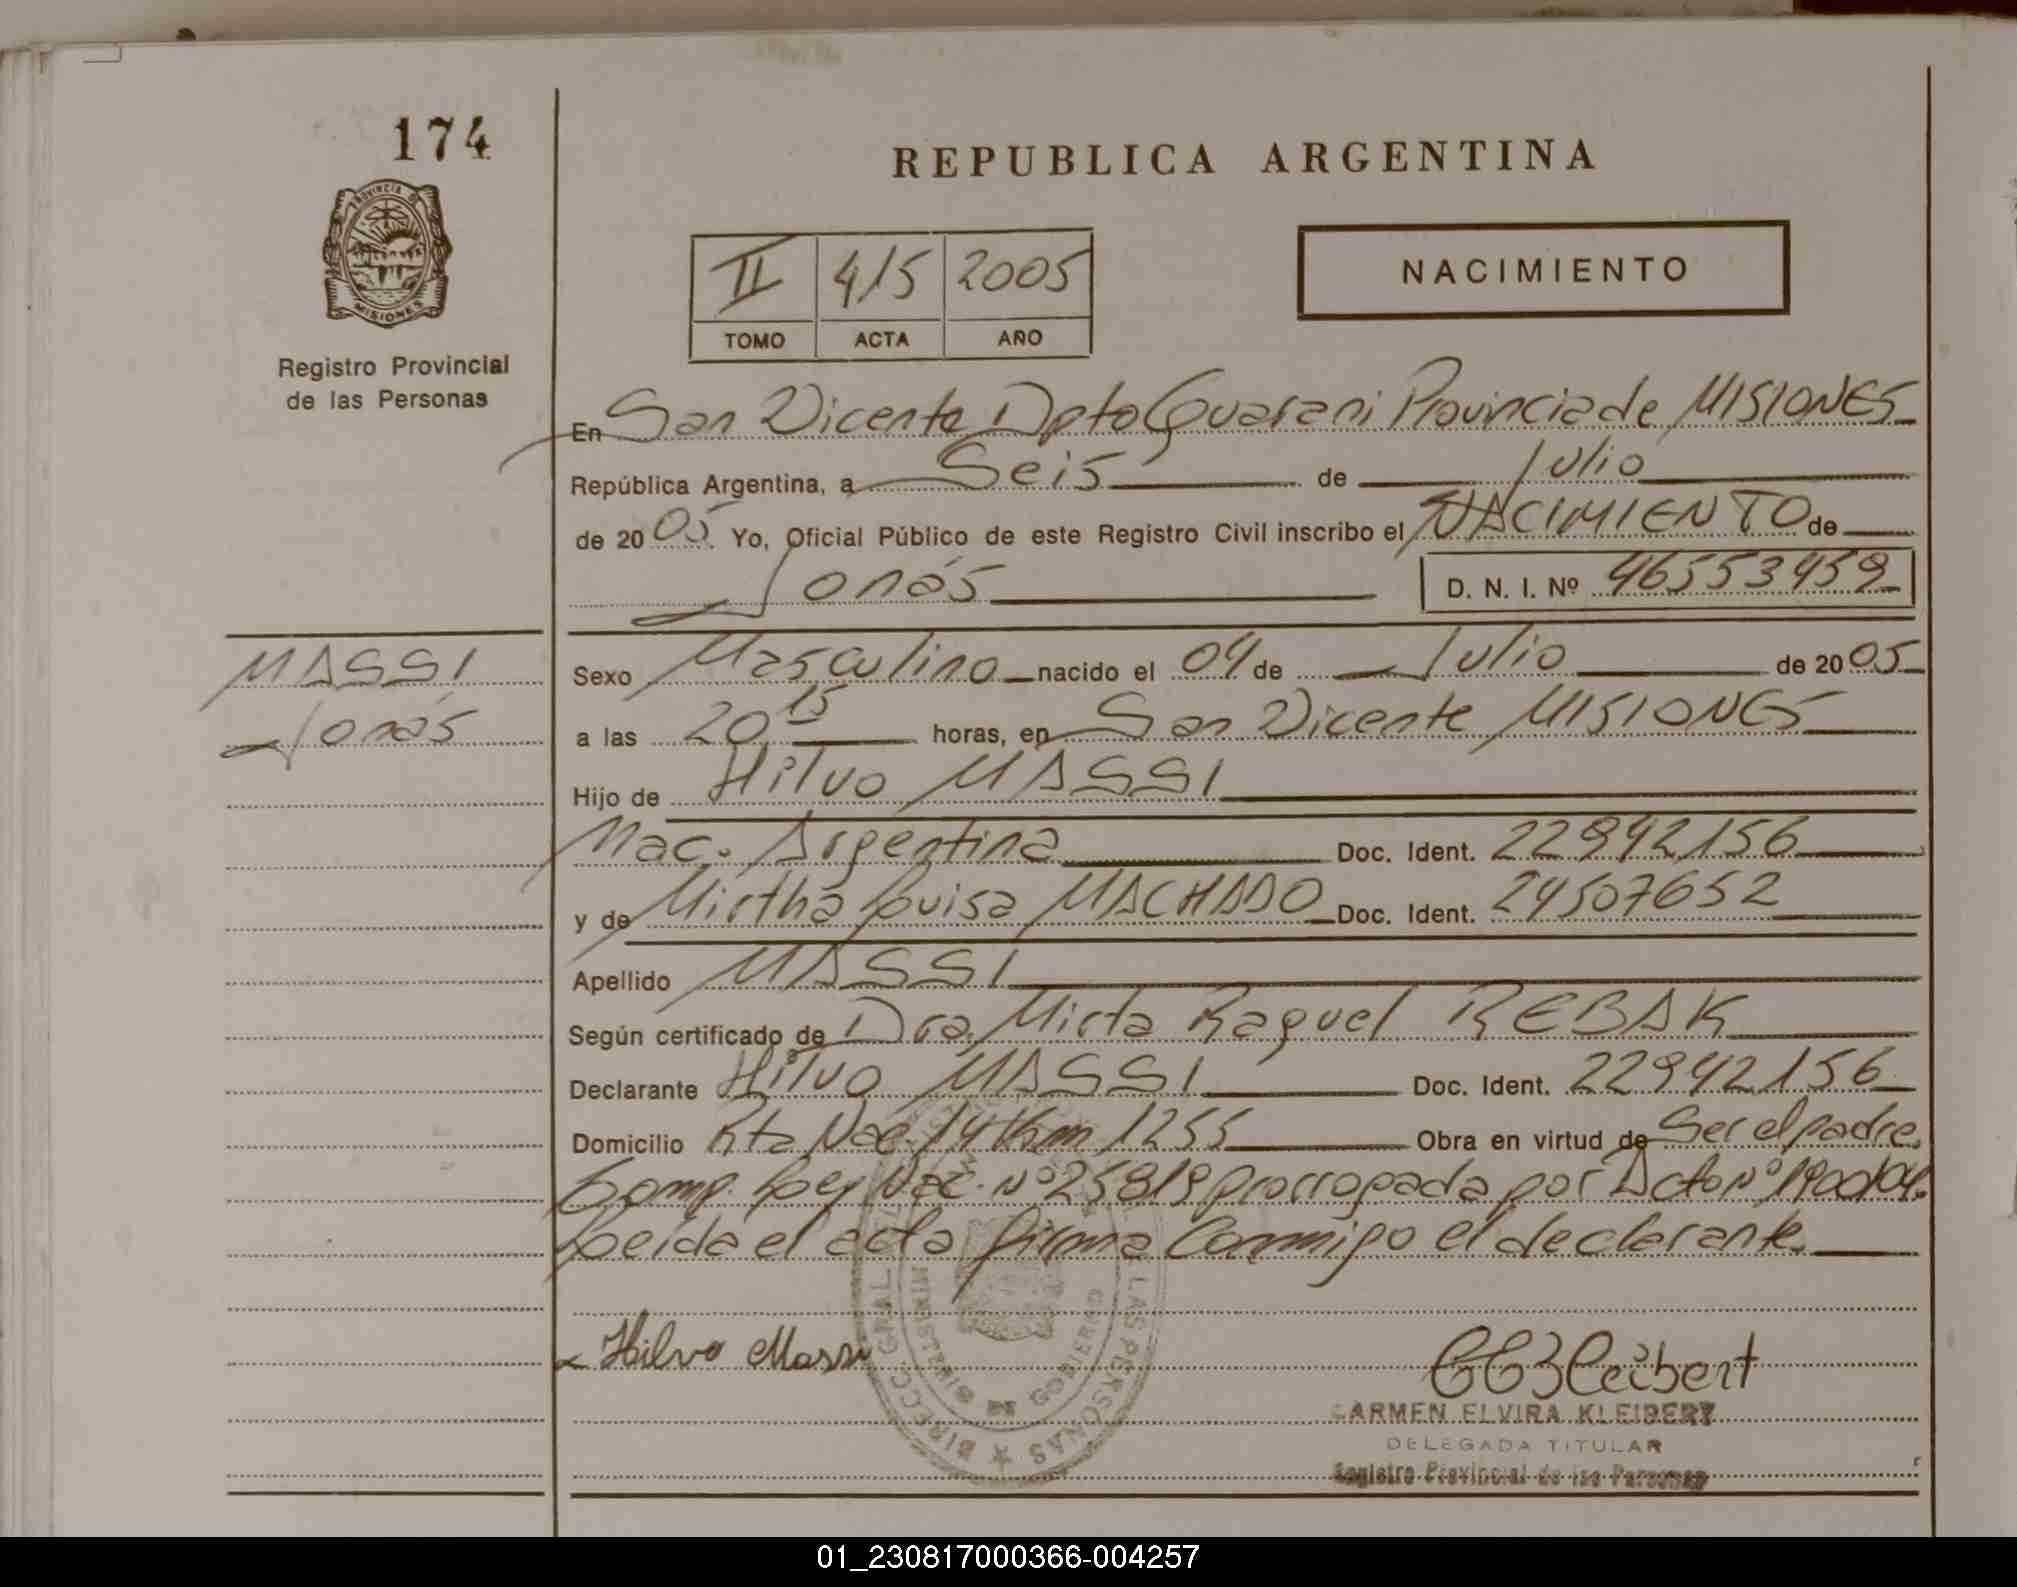 174
REPUBLICA ARGENTINA
PROVINCIA DE
MISIONES
Registro Provincial
de las Personas
II 415 2005
TOMO ACTA AÑO
NACIMIENTO
En San Vicente Dpto Guarani Provincia de MISIONES
República Argentina, a Seis de Julio
de 2005 Yo, Oficial Público de este Registro Civil inscribo el NACIMIENTO de
Jonás D. N. I. Nº 46553459
MASSI
Jonás
Sexo Masculino nacido el 04 de Julio de 2005
a las 20 15 horas, en San Vicente MISIONES
Hijo de Hilvo MASSI
Nac. Argentina Doc. Ident. 22942156
y de Mirtha Luisa MACHADO Doc. Ident. 24507652
Apellido MASSI
Según certificado de Dra. Mirta Raquel REBAK
Declarante Hilvo MASSI Doc. Ident. 22942156
Domicilio Rta Nac. 14 Km 1255 Obra en virtud de Ser el padre.
Comp. Ley Nac. Nº 25819 prorrogada por Dcto Nº 1900/04.
Leída el acta firma Conmigo el declarante.
Hilvo Massi
CEKleibert
CARMEN ELVIRA KLEIBERT
DELEGADA TITULAR
Registro Provincial de las Personas
DIRECC GRAL DE LAS PERSONAS
MINISTERIO DE GOBIERNO
01_230817000366-004257